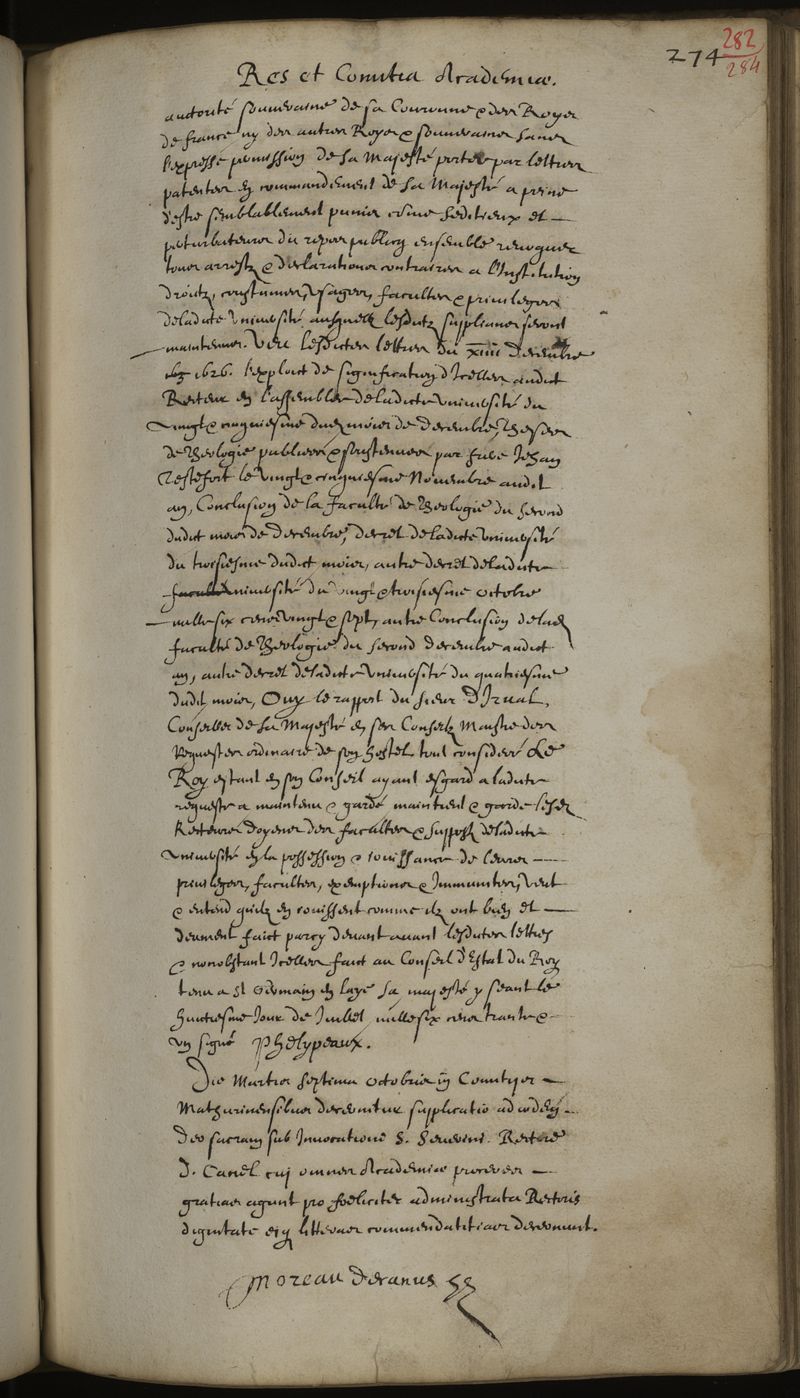 274 282
284
Res et Comitia Academiæ.
autorité souveraine de sa Couronne & des Roys
de france ny des autres Roys & souverains sans
l'expresse permission de sa Majesté portée par lettres
patentes en commandement de sa Majesté a peine
d'estre semblablement punis côme seditieux et
perturbateurs du repos publicq ensemble revoquer
tous arrestz & declarations contraires a l'Institution
droictz, coustumes, usages, facultez & privileges
deladicte université, ausquelz lesdictz supplians seront
maintenus. Veu lesdictes lettres du xiiii Decembre
1626. l'exploict de signification d'Icelles audict
Recteur en l'assemblee deladicte université du
vingt & cinquiesme dudict mois de decembre, Theses
de Theologie publiees & soustenues par frere Jehan
Testefort le vingt & cinquiesme Novembre audit
an, Conclusion de la faculté de Theologie du second
dudict mois de decembre, decret deladicte université
du troisiesme dudict mois, autre decret deladicte
université du vingt & troisiesme octobre
mille six cens vingt & sept, autre Conclusion delad
faculté de Theologie du second decembre audict
an, autre decret deladicte université du quatriesme
dudit mois, Ouy le rapport du sieur
Conseiller de sa Majesté en ses Conseilz Maistre des
Requestes ordinaire de son hostel tout consideré Le
Roy estant en son Conseil ayant esgard a ladicte
requeste a maintenu & gardé maintient & garde lesdz
Recteurs doyens des facultez & suppostz deladicte
université en la possession & jouissance de leurs
privileges, facultez, exemptions & Immunitez, veut
& entend quilz en jouissent comme ilz ont bien et
deument faict parcy devant avant lesdictes lettres
& nonobstant Icelles faict au Conseil d'Estat du Roy
tenu a St Germain en laye sa majesté y seant le
huictiesme Jour de Juillet mille six cens trante &
un signé Phelypeaux.
Die Martis septima octobris in Comitijs
Mathurinensibus decernitur supplicatio ad ædem
deo sacram sub Invocatione S. Severini. Rectore
D. Canel cui omnes Academiæ proceres
gratias agunt pro fœliciter administrata Rectoris
dignitate eiq litteras commendatitias decernunt.
Moreau Decanus